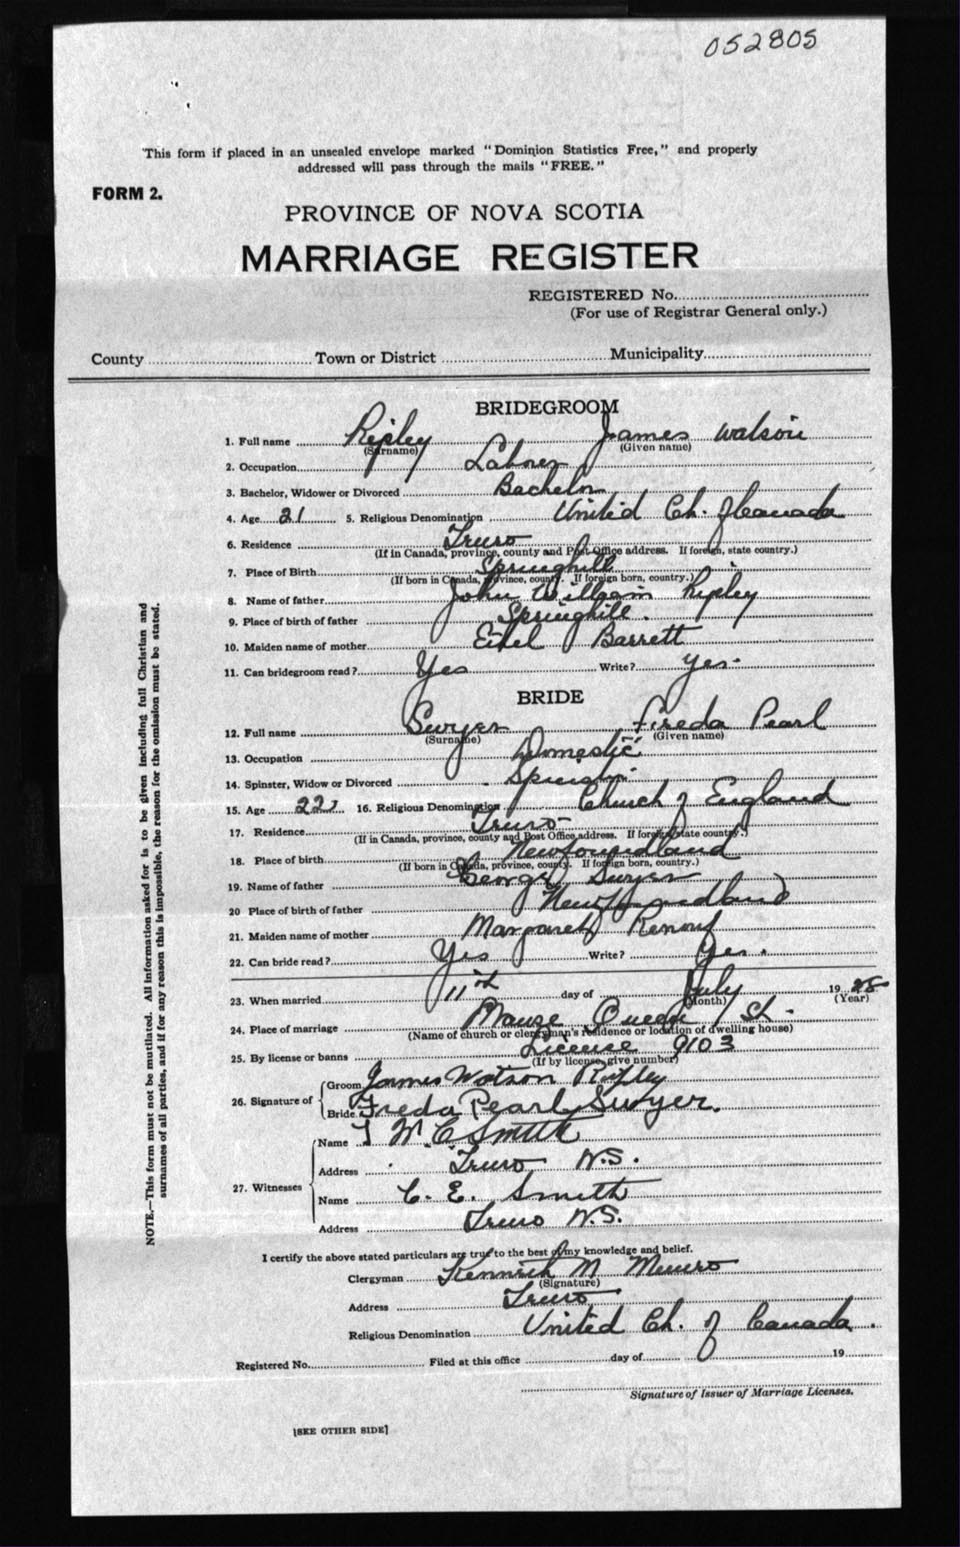 052805
This form if placed in an unsealed envelope marked "Dominion Statistics Free," and properly
addressed will pass through the mails "FREE."
FORM 2.
PROVINCE OF NOVA SCOTIA
MARRIAGE REGISTER
REGISTERED No.
(For use of Registrar General only.)
County Town or District Municipality
BRIDEGROOM
1. Full name Ripley James Watson
(Surname) (Given name)
2. Occupation Labrer
3. Bachelor, Widower or Divorced Bachelor
4. Age 21 5. Religious Denomination United Ch. of Canada
6. Residence Truro
(If in Canada, province, county and Post Office address. If foreign, state country.)
7. Place of Birth Springhill
(If born in Canada, province, county. If foreign born, country.)
8. Name of father John William Ripley
9. Place of birth of father Springhill.
10. Maiden name of mother Ethel Barrett
11. Can bridegroom read? Yes Write? Yes.
BRIDE
12. Full name Swyer Freda Pearl
(Surname) (Given name)
13. Occupation Domestic
14. Spinster, Widow or Divorced Spinster
15. Age 22 16. Religious Denomination Church of England
17. Residence Truro
(If in Canada, province, county and Post Office address. If foreign state country.)
18. Place of birth Newfoundland
(If born in Canada, province, county. If foreign born, country.)
19. Name of father George Swyer
20 Place of birth of father Newfoundland
21. Maiden name of mother Margaret Renouf
22. Can bride read? Yes Write? Yes.
23. When married 11th day of July 1928
(Month) (Year)
24. Place of marriage Manse Queen St.
(Name of church or clergyman's residence or location of dwelling house)
25. By license or banns License 9103
(If by license, give number)
26. Signature of Groom James Watson Ripley
Bride Freda Pearl Swyer.
27. Witnesses Name M. C Smith
Address Truro N.S.
Name C. E. Smith
Address Truro N.S.
I certify the above stated particulars are true to the best of my knowledge and belief.
Clergyman Kenneth M Munro
(Signature)
Address Truro
Religious Denomination United Ch. of Canada.
Registered No. Filed at this office day of 19
Signature of Issuer of Marriage Licenses.
[SEE OTHER SIDE]
NOTE.—This form must not be mutilated. All information asked for is to be given including full Christian and
surnames of all parties, and if for any reason this is impossible, the reason for the omission must be stated.